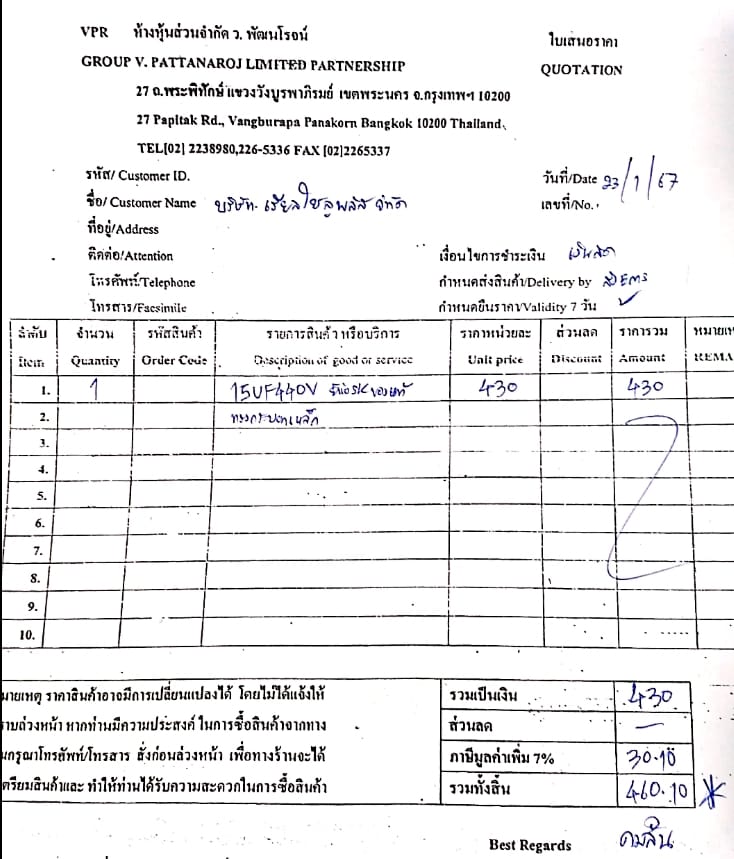 VPR ห้างหุ้นส่วนจำกัด ว. พัฒนโรจน์
ใบเสนอราคา
GROUP V. PATTANAROJ LIMITED PARTNERSHIP
QUOTATION
27 ถ.พระพิทักษ์ แขวงวังบูรพาภิรมย์ เขตพระนคร จ.กรุงเทพฯ 10200
27 Papitak Rd., Vangburapa Panakorn Bangkok 10200 Thailand.
TEL[02] 2238980,226-5336 FAX [02]2265337
รหัส/ Customer ID.
วันที่/Date 23/1/67
ชื่อ/ Customer Name บริษัท เรียลโซลูพลัส จำกัด
เลขที่/No.
ที่อยู่/Address
ติดต่อ/Attention
เงื่อนไขการชำระเงิน เงินสด
โทรศัพท์/Telephone
กำหนดส่งสินค้า/Delivery by ส่ง EMS
โทรสาร/Facsimile
กำหนดยืนราคา/Validity 7 วัน ✓
ลำดับ จำนวน รหัสสินค้า รายการสินค้า หรือบริการ ราคาหน่วยละ ส่วนลด ราคารวม หมายเห
Item Quantity Order Code Description of good or service Unit price Discount Amount REMA
1. 1 15UF440V ยี่ห้อ SK ของแท้ 430 430
2. ทรงกระบอกเหล็ก
3.
4.
5.
6.
7.
8.
9.
10.
มายเหตุ ราคาสินค้าอาจมีการเปลี่ยนแปลงได้ โดยไม่ได้แจ้งให้
รวมเป็นเงิน 430
ราบล่วงหน้า หากท่านมีความประสงค์ ในการซื้อสินค้าจากทาง
ส่วนลด —
นกรุณาโทรศัพท์/โทรสาร สั่งก่อนล่วงหน้า เพื่อทางร้านจะได้
ภาษีมูลค่าเพิ่ม 7% 30.10
ตรียมสินค้าและ ทำให้ท่านได้รับความสะดวกในการซื้อสินค้า
รวมทั้งสิ้น 460.10 *
Best Regards คมสัน